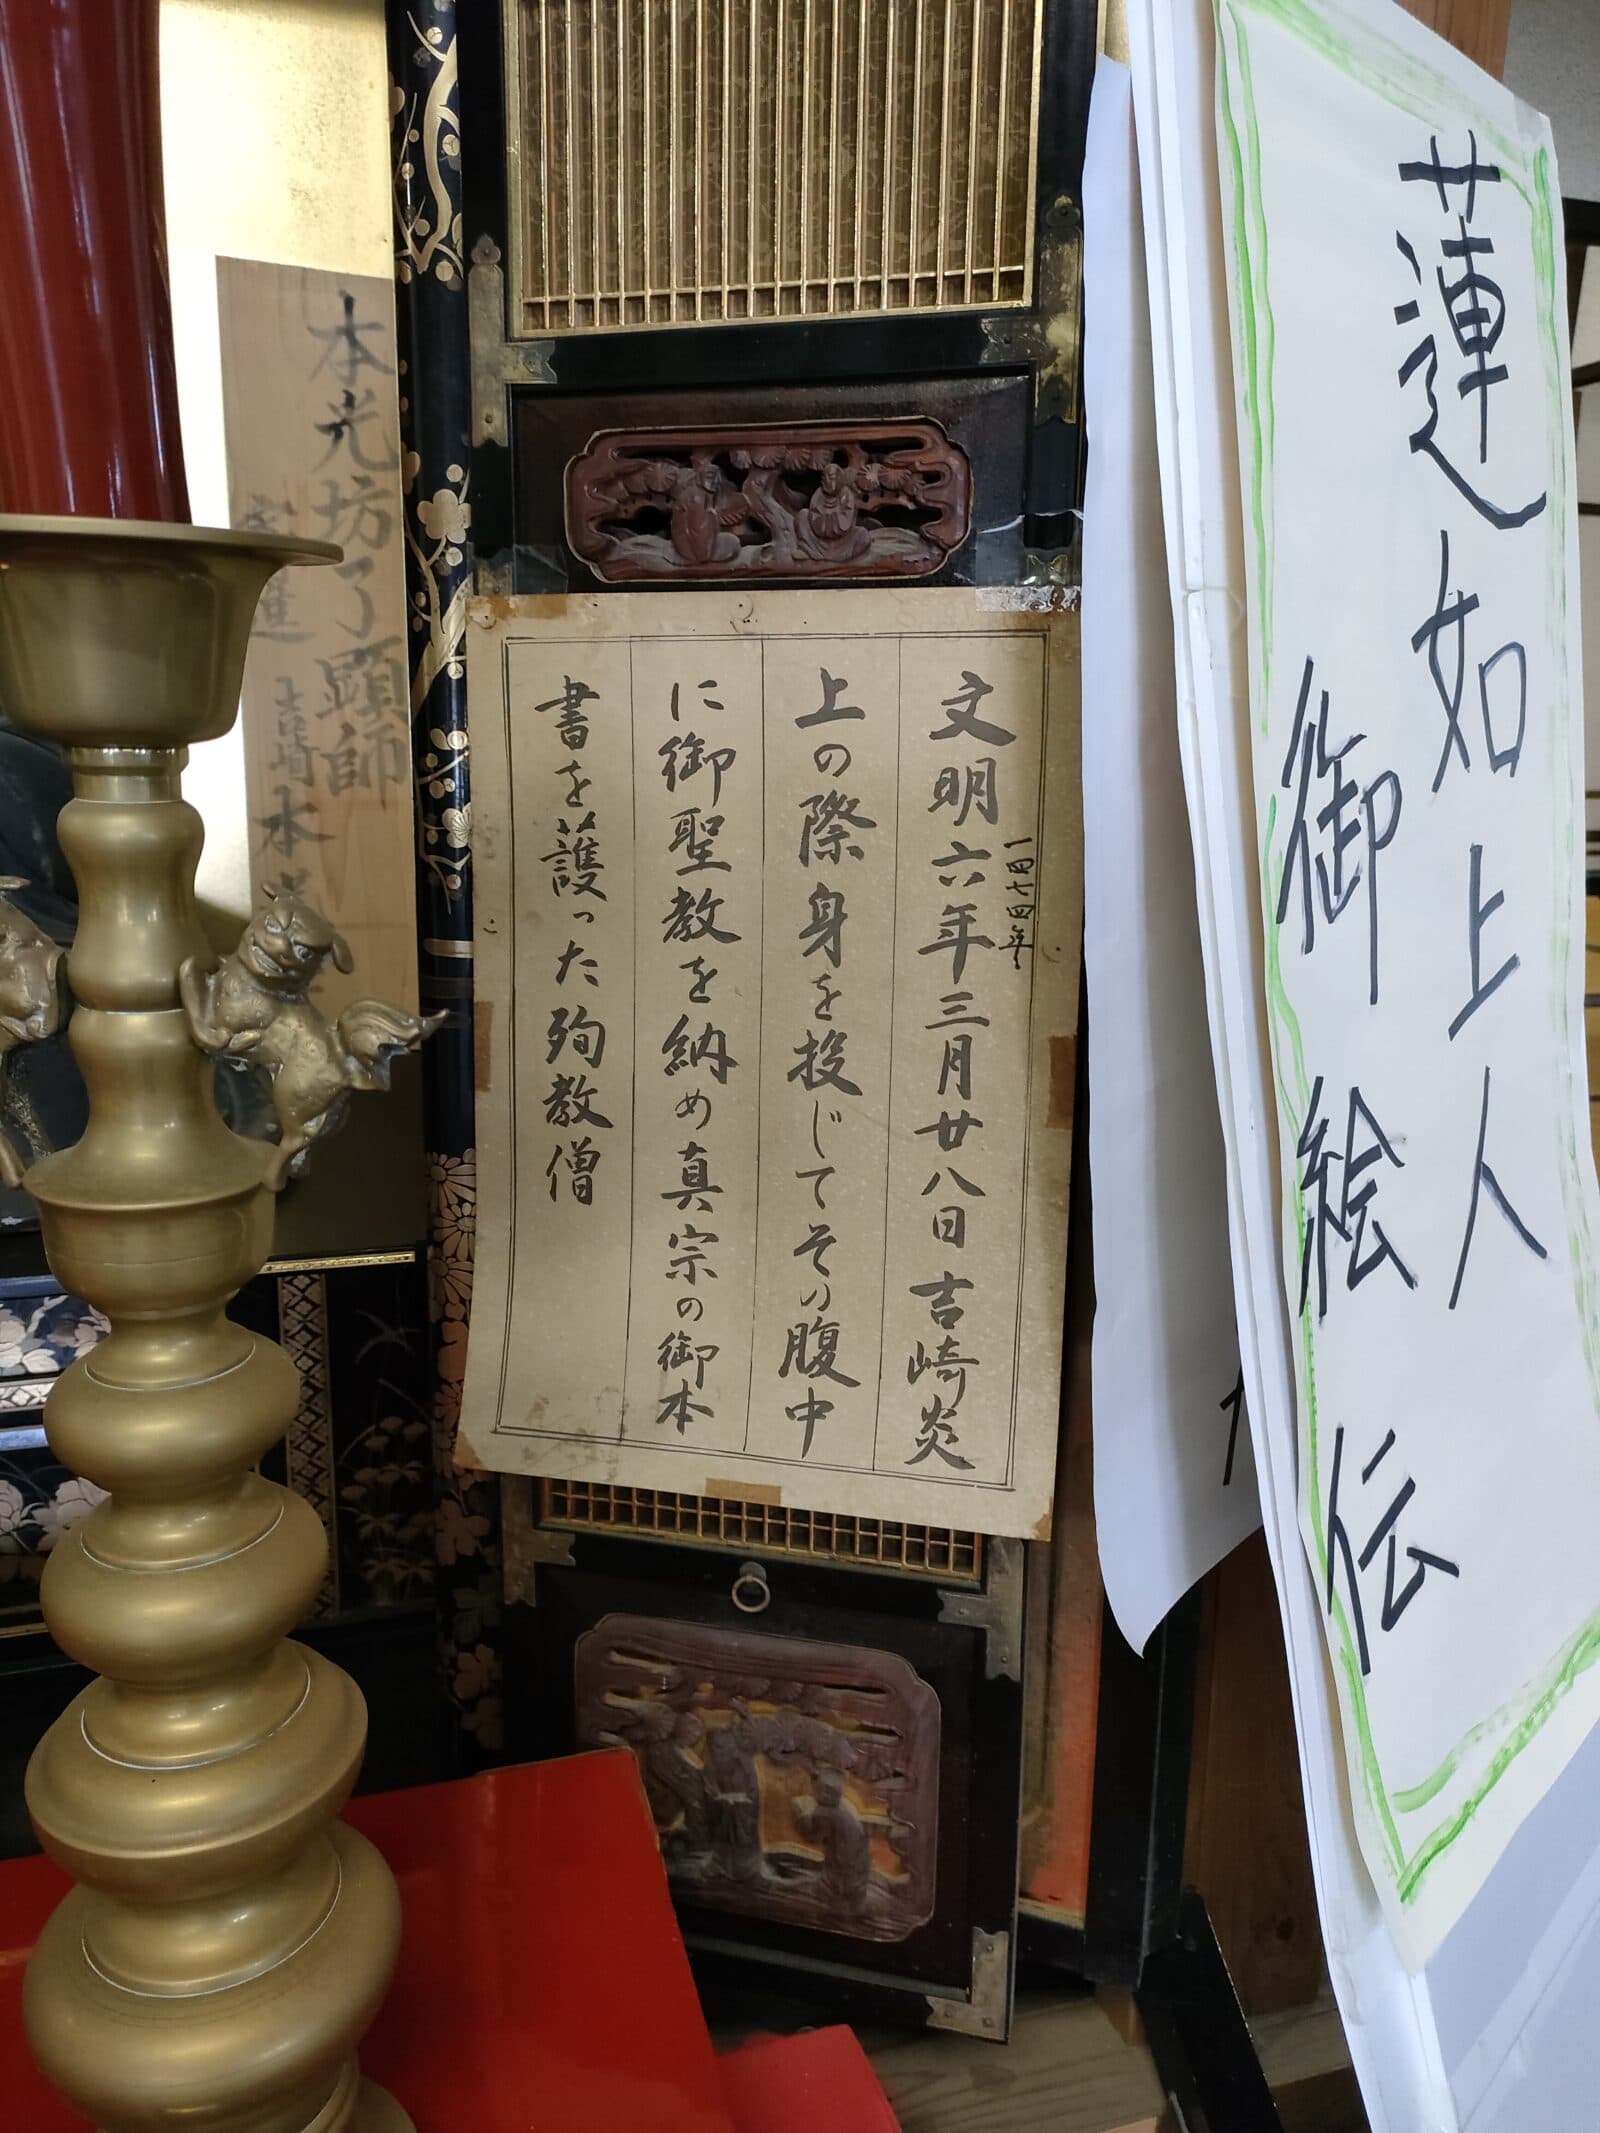 蓮如上人
御絵伝
文明六年三月廿八日吉崎炎
一四七四年
上の際身を投じてその腹中
に御聖教を納め真宗の御本
書を護った殉教僧
本光坊了顕師
吉崎本